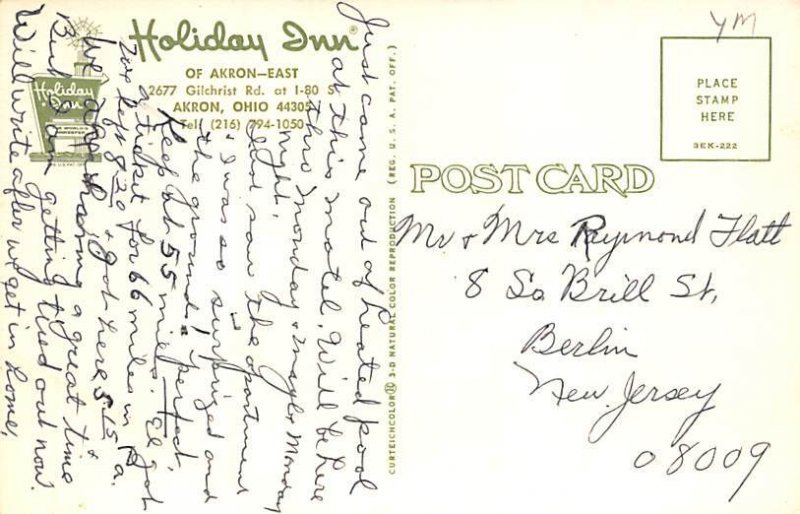 Holiday Inn®
OF AKRON—EAST
2677 Gilchrist Rd. at I-80 S
AKRON, OHIO 44305
Tel: (216) 794-1050
Holiday
Inn
Just came out of heated pool
at this motel. Will be here
this monday & maybe Monday
night.
El saw the apartment
I was so surprized and
the ground perfect,
Keep at 55 miles. El got
a ticket for 66 miles in Pa.
We left 8 20 & got here 5 15
We are having a great time
But am getting tired out now.
Will write after we get in home,
CURTEICHCOLOR® 3-D NATURAL COLOR REPRODUCTION (REG. U.S.A. PAT. OFF.)
POST CARD
YM
PLACE
STAMP
HERE
3EK-222
Mr & Mrs Raymond Flatt
8 So Brill St,
Berlin
New Jersey
08009